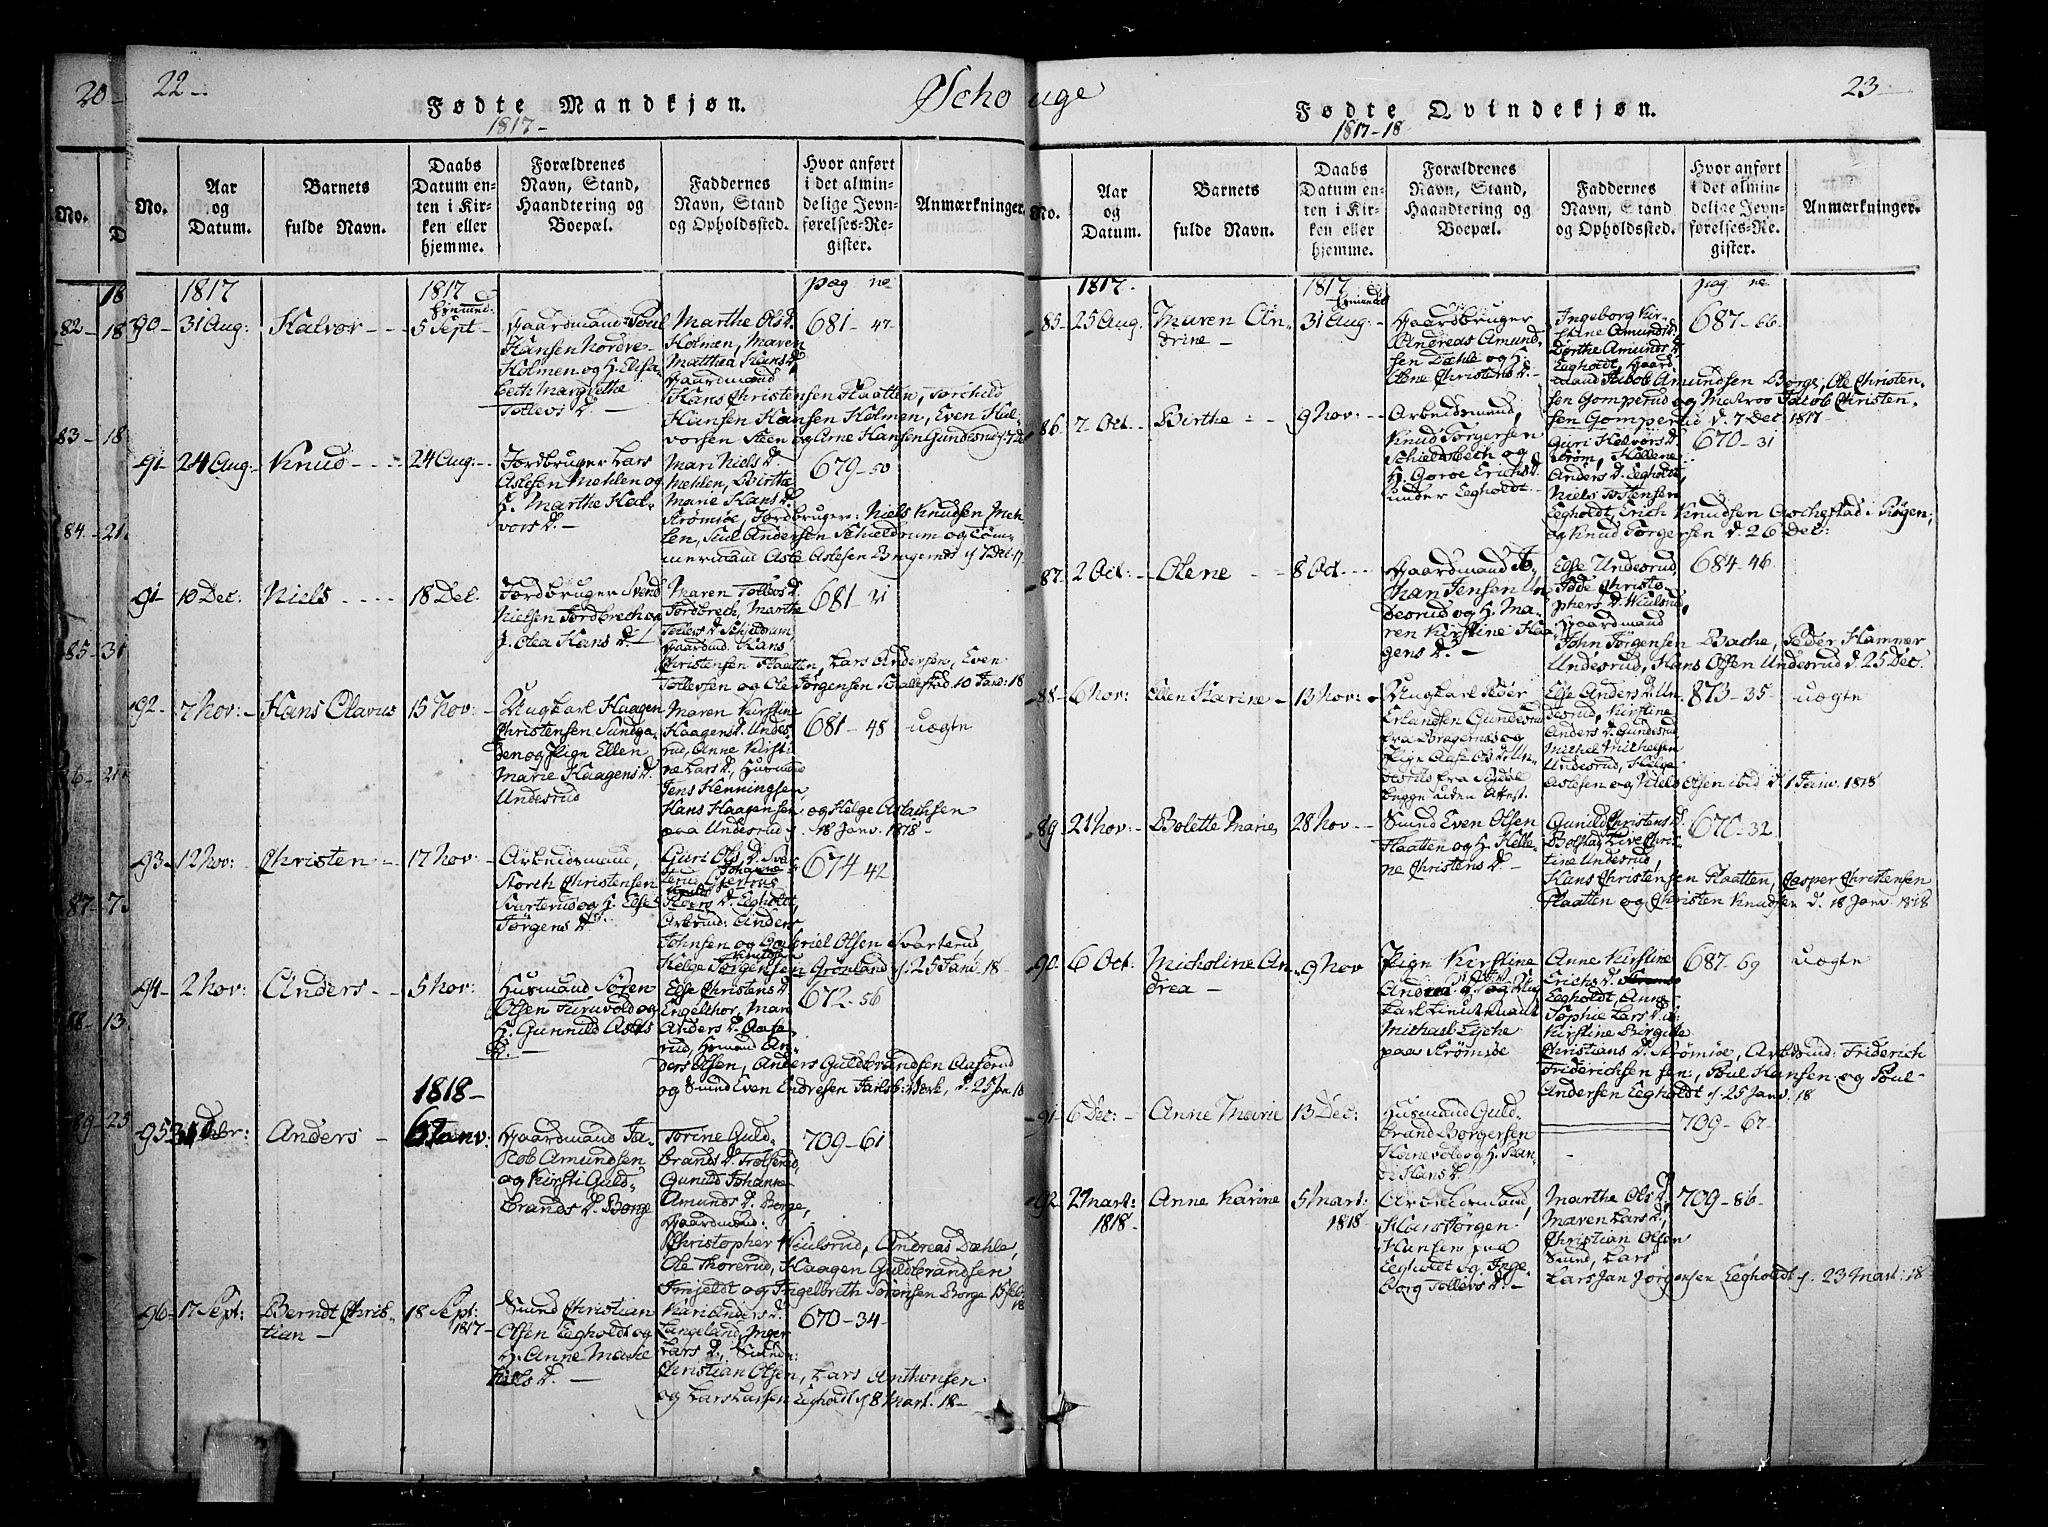 20-
22-
Fødte Mandkjøn.
1817-
No.
No.
Aar og Datum.
Barnets fulde Navn.
Daabs Datum enten i Kirken eller hjemme.
Forældrenes Navn, Stand, Haandtering og Boepæl.
Faddernes Navn, Stand og Opholdssted.
Hvor anført i det almindelige Jevnførelses-Register.
Anmærkninger.
1817
1817
pag no
90-
31 Aug:
Halvor
5 Sept
Hansen Nordre
Holmen og H. Elisa-
beth Margrethe
Tollevs D.
Marthe Ols D.
Holmen, Maren
Matthea Hans D.
Gaardmænd
Hans Christensen Flaatten, Torchild
Hansen Hansen Holmen, Even Hal-
vorsen Steen og Arne Hansen Gundesrud
681-47
91-
24 Aug:
Knud
24 Aug:
Jordbruger Lars
Aslesen Mehlen og
H. Marthe Hal-
vors D.
Mari Niels D.
Mæhlen, Birthe
Marie Hans D.
Strømsøe, Jordbruger: Niels Knudsen Meh-
len,
679-50
91-
10 Dec:
Niels
18 Dec.
Jordbruger Svend
Nielsen Jordbrech og
H. Olea Hans D.
Maren Tollevs D.
Jordbrech, Marthe
Tollevs D. Schieldrum,
Gaardmd: Hans
Christensen Flaatten, Lars Andersen, Even
Tollevsen og Ole Jørgensen Schalestad 10 Janv: 18
92-
7 Nov:
Hans Olavus
15 Nov:
Ungkarl Haagen
Christensen
og Pige Ellen
Marie Haagens D.
Undesrud
Maren Kirstine
Haagens D. Undes-
rud, Anne Kirsti-
ne Lars D., Huusmænd
Jens Henningsen,
Hans Haagensen og Helge Aslachsen
paa Undesrud d. 18 Janv. 1818
681-48
uægte
93-
12 Nov:
Christen
17 Nov:
Arbeidsmand,
Storch Christensen
Svarterud og H. Else
Jørgens D.
Guri Ols D. Svar-
terud,
Arbmd: Anders
Johnsen og Gabriel Olsen Svarterud,
Helge Jørgensen Grønland d. 25 Janv. 18
674-42
94-
2 Nov:
Anders
5 Nov:
Huusmand Søren
Olsen Furuvold og
H. Gunnild Asles
D.
Else Christens D.
Engelthor, Mari
Anders D. Aase-
rud, Hmænd An-
ders Olsen, Anders Guldbrandsen Aaserud
og Smed Even Endresen Jarlsb: Verk, d. 25 Jan 18
672-56
1818-
95
31 Decbr:
Anders
6 Janv:
Gaardmand Ja-
kob Amundsen
og Kirsti Guld-
brands D. Borge
Torine Guld-
brands D. Trolserud,
Gunild Johanne
Amunds D. Borge,
Gaardmænd:
Christopher Wiulsrud, Andreas Dæhle,
Ole Thorerud, Haagen Guldbrandsen
og Ingelbreth Sørensen Borge 15 feb: 18
709-61
96-
17 Sept:
Berndt Chris-
tian
18 Sept:
1817-
Smed Christian
Olsen Eegholdt og
H. Anne Marie
Niels D.
Kari Anders D.
Langeland, Inger
Lars D., Smeder:
Christian Olsen, Lars Anthonsen
og Lars Larsen Eegholdt d. 8 Mart. 18-
670-34
Schouge
23
Fødte Qvindekjøn.
1817-18
No.
Aar og Datum.
Barnets fulde Navn.
Daabs Datum enten i Kirken eller hjemme.
Forældrenes Navn, Stand, Haandtering og Boepæl.
Faddernes Navn, Stand og Opholdssted.
Hvor anført i det almindelige Jevnførelses-Register.
Anmærkninger.
1817.
1817
pag no
85-
25 Aug.
Maren An-
drine
31 Aug:
Gaardbruger
Andreas Amund-
sen Dæhle og H.
Elene Christens D.
Ingeborg Kir-
stine Amunds D.
Dorthe Amunds D.
Eegholdt, Gaard-
mænd Jacob Amundsen Borge, Ole Christen-
sen Gomperud og Matros Jacob Christen-
sen Gomperud d. 7 Dec. 1817
687-66
86-
7 Oct.
Birthe
9 Nov:
Arbeidsmand,
Knud Torgersen
Schieldsbeth og
H. Goroe Erichs D.
under Eegholdt
Guri Halvors D.
Strøm, Hellene
Anders D. Eegholdt,
Niels Tostensen
Eegholdt, Erich Knudsen Aschestad i Sigen,
og Knud Torgersen d. 26 Dec:
670-31
87-
2 Oct:
Olene
8 Oct.
Gaardmand Jo-
han Jensen Un-
desrud og H. Ma-
ren Kirstine Haa-
gens D.
Else Undesrud,
Christo-
phers D. Wiulsrud,
Gaardmænd
John Jørgensen Bache, Peder Hammer
Undesrud, Hans Olsen Undesrud d. 25 Dec.
684-46
88-
6 Nov:
Ellen Karine
13 Nov:
Ungkarl Peder
Erlandsen Gundesrud
fra Bragernæs og
Pige Aase Ols D. Un-
desrud fra Sigdal
begge uden Attest.
Else Anders D. Un-
desrud, Kirstine
Anders D. Gundesrud
Michel Michelsen
Undesrud, Helge
Aslesen og Niels Olsen ibid d. 1 Janv. 1818
873-35
uægte
89-
21 Nov:
Bolette Marie,
28 Nov
Smed Even Olsen
Flaatten og H. Helle-
ne Christens D.
Gunild Christens D.
Bolstad, Live Chris-
tine Undesrud,
Hans Christensen Flaatten, Casper Christensen
Flaatten og Christen Knudsen d. 18 Janv. 1818
670-32
90-
6 Oct:
Micholine An-
drea
9 Nov
Pige Kirstine
karl Lieutenant
Michael Lyche
paa Strømsøe
Anne Kirstine
Erichs D.
Eegholdt, Anne
Sophie Lars D. &
Kirstine Birgitte
Christians D. Strømsøe, Arbdsmd: Friderich
Friderichsen, Poul Hansen og Poul
Andersen Eegholdt d. 25 Janv. 18
687-69
uægte
91-
6 Dec:
Anne Marie
13 Dec:
Huusmand Guld-
brand Borgersen
Hornevold og H. Ran-
di Hans D.
709-67-
92-
2 Mart:
1818-
Anne Karine
5 Mart:
1818
Arbeidsmand,
Hans Jørgen
Hansen paa
Eegholdt og Inge-
borg Tollevs D.
Marthe Ols D.
Maren Lars D.,
Christian Olsen
Smed, Lars
Lars Jan Jørgensen Eegholdt d. 23 Mart: 18
709-86-